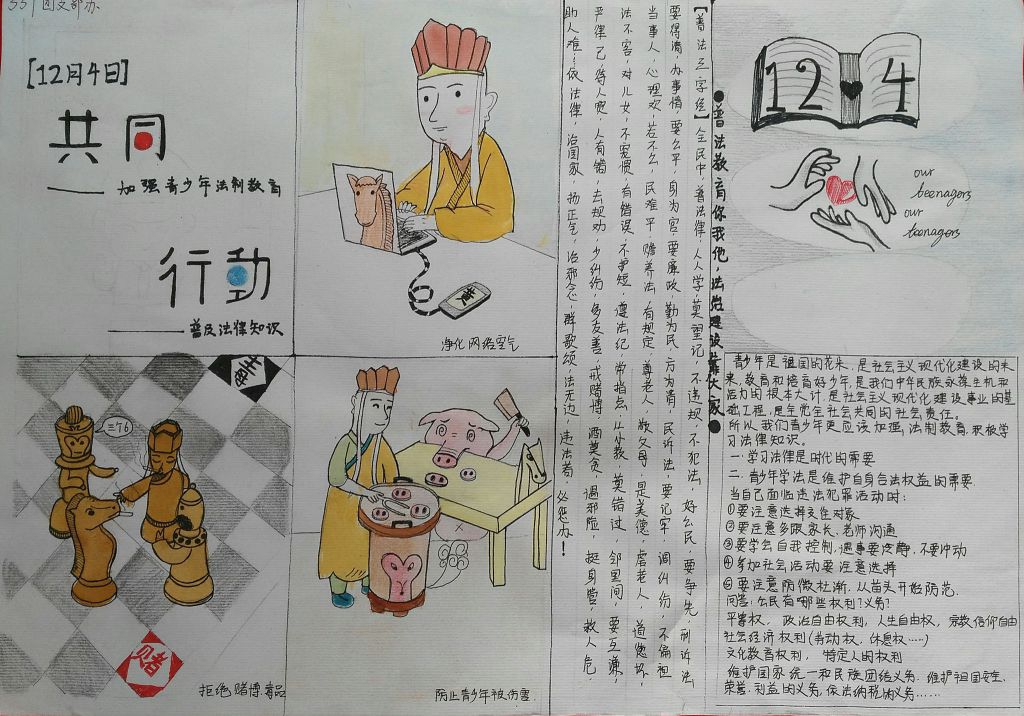 [12月4日]
共同
——加强青少年法制教育
行动
——普及法律知识
黄
净化网络空气
毒
三个6
赌
拒绝赌博、毒品
防止青少年被伤害
【普法三字经】全民中，普法律，人人学，莫望记，不违规，不犯法，好公民，要争先，刑诉法
要得清，办事情，要公平，身为官，要廉政，勤为民，方为青，民诉法，要记牢，调纠纷，不偏袒
当事人，心理欢，若不公，民难平，赡养法，有规定，尊老人，敬父母，是美德，虐老人，道德坏，
法不容，对儿女，不宽惯，有错误，不护短，遵法纪，常指点，从小教，莫错过，邻里间，要互谦，
严律己，待人宽，人有错，去规劝，少纠纷，多友善，戒赌博，酒莫贪，遇邪险，挺身营，救人危，
助人难，依法律，治国家，扬正气，治邪念，群歌颂，法无边，违法者，必惩办！
●普法教育你我他，法治建设靠大家●
12 4
our
teenagers
our
teenagers
青少年是祖国的花朵，是社会主义现代化建设的未
来，教育和培育好少年，是我们中华民族永葆生机和
活力的根本大计，是社会主义现代化建设事业的基
础工程，是全党全社会共同的社会责任。
所以我们青少年更应该加强法制教育，积极学
习法律知识。
一、学习法律是时代的需要
二、青少年学法是维护自身合法权益的需要
当自己面临违法犯罪活动时：
①要注意选择交往对象
②要注意多跟家长、老师沟通
③要学会自我控制，遇事要冷静，不要冲动
④参加社会活动要注意选择
⑤要注意防微杜渐，从苗头开始防范.
问答：公民有哪些权利？义务？
平等权、政治自由权利，人生自由权，宗教信仰自由
社会经济权利（劳动权、休息权……）
文化教育权利，特定人的权利
维护国家统一和民族团结义务，维护祖国安全、
荣誉、利益的义务，依法纳税的义务……